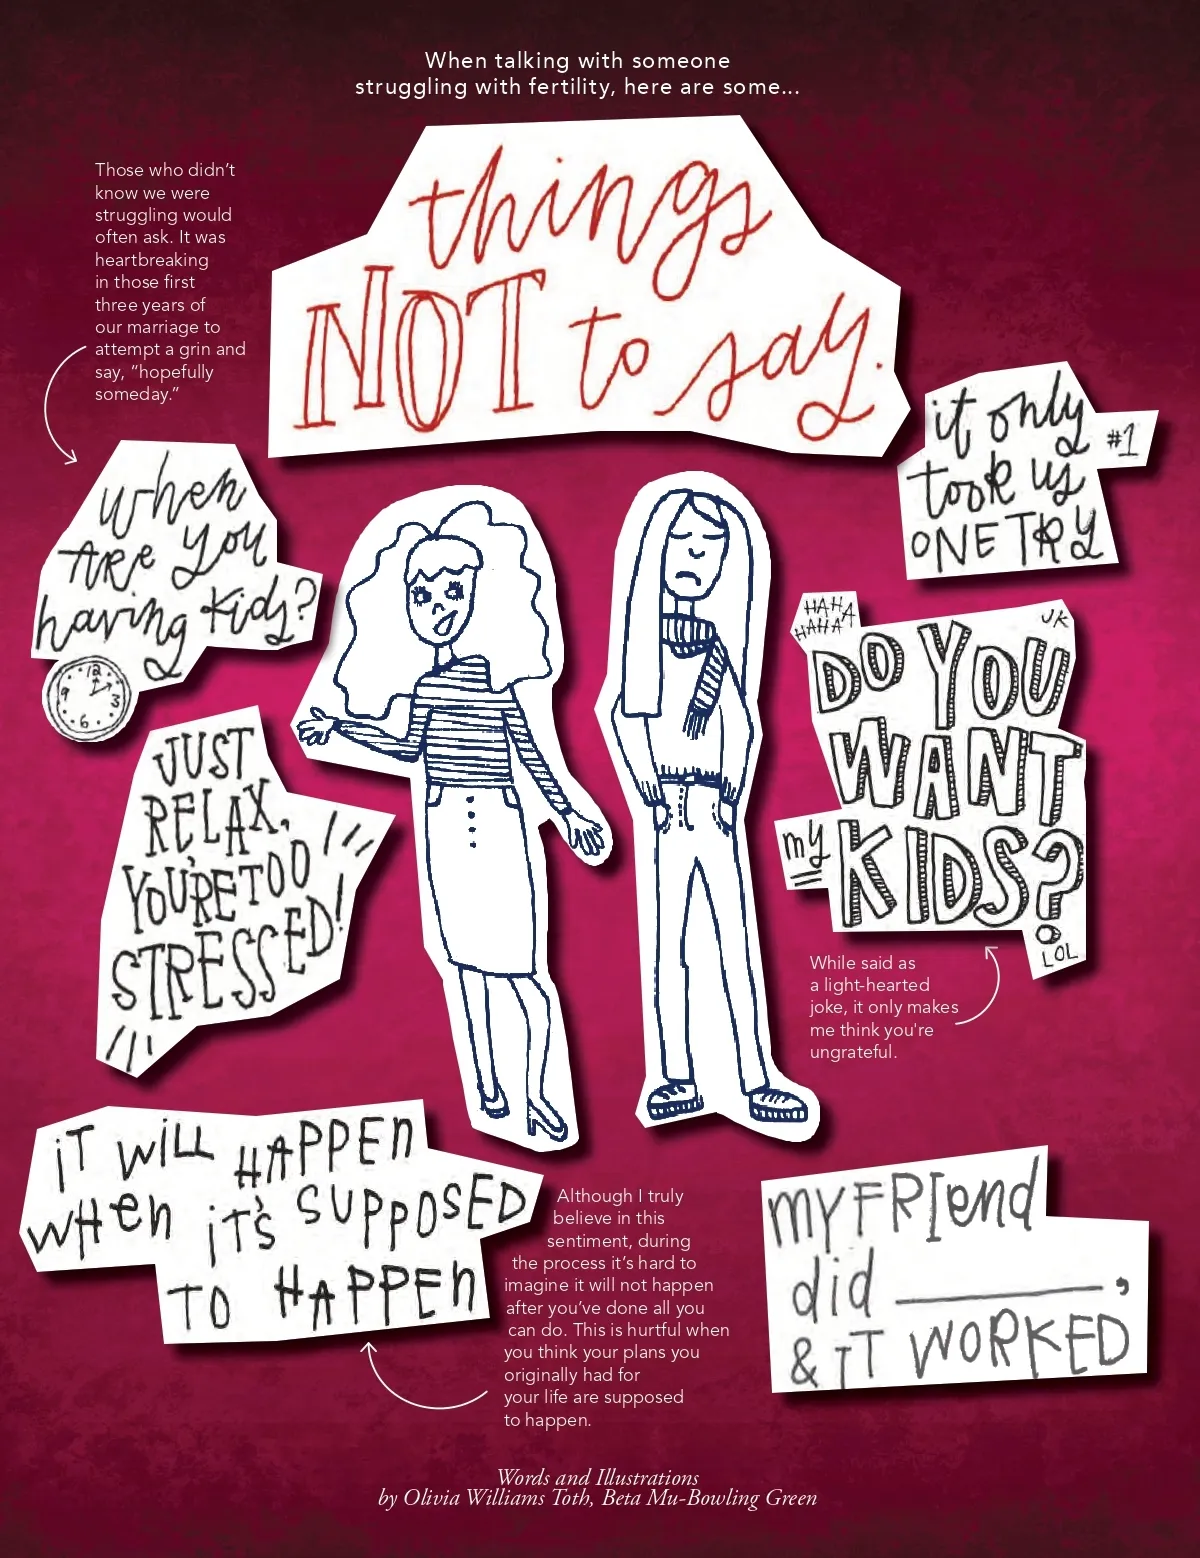 When talking with someone
struggling with fertility, here are some...
things
NOT to say.
Those who didn't
know we were
struggling would
often ask. It was
heartbreaking
in those first
three years of
our marriage to
attempt a grin and
say, "hopefully
someday."
when
ARe you
having kids?
12
3
6
9
it only
took us
ONE TRY
#1
HAHA
HAHA
JK
DO YOU
WANT
my
KIDS?
LOL
While said as
a light-hearted
joke, it only makes
me think you're
ungrateful.
JUST
RELAX,
YOU'RE TOO
STRESSED!
iT WiLL HAPPEN
wHen iT's SUPPOSED
TO HAPPEN
Although I truly
believe in this
sentiment, during
the process it's hard to
imagine it will not happen
after you've done all you
can do. This is hurtful when
you think your plans you
originally had for
your life are supposed
to happen.
myFRIend
did ________,
& IT WORKED
Words and Illustrations
by Olivia Williams Toth, Beta Mu-Bowling Green